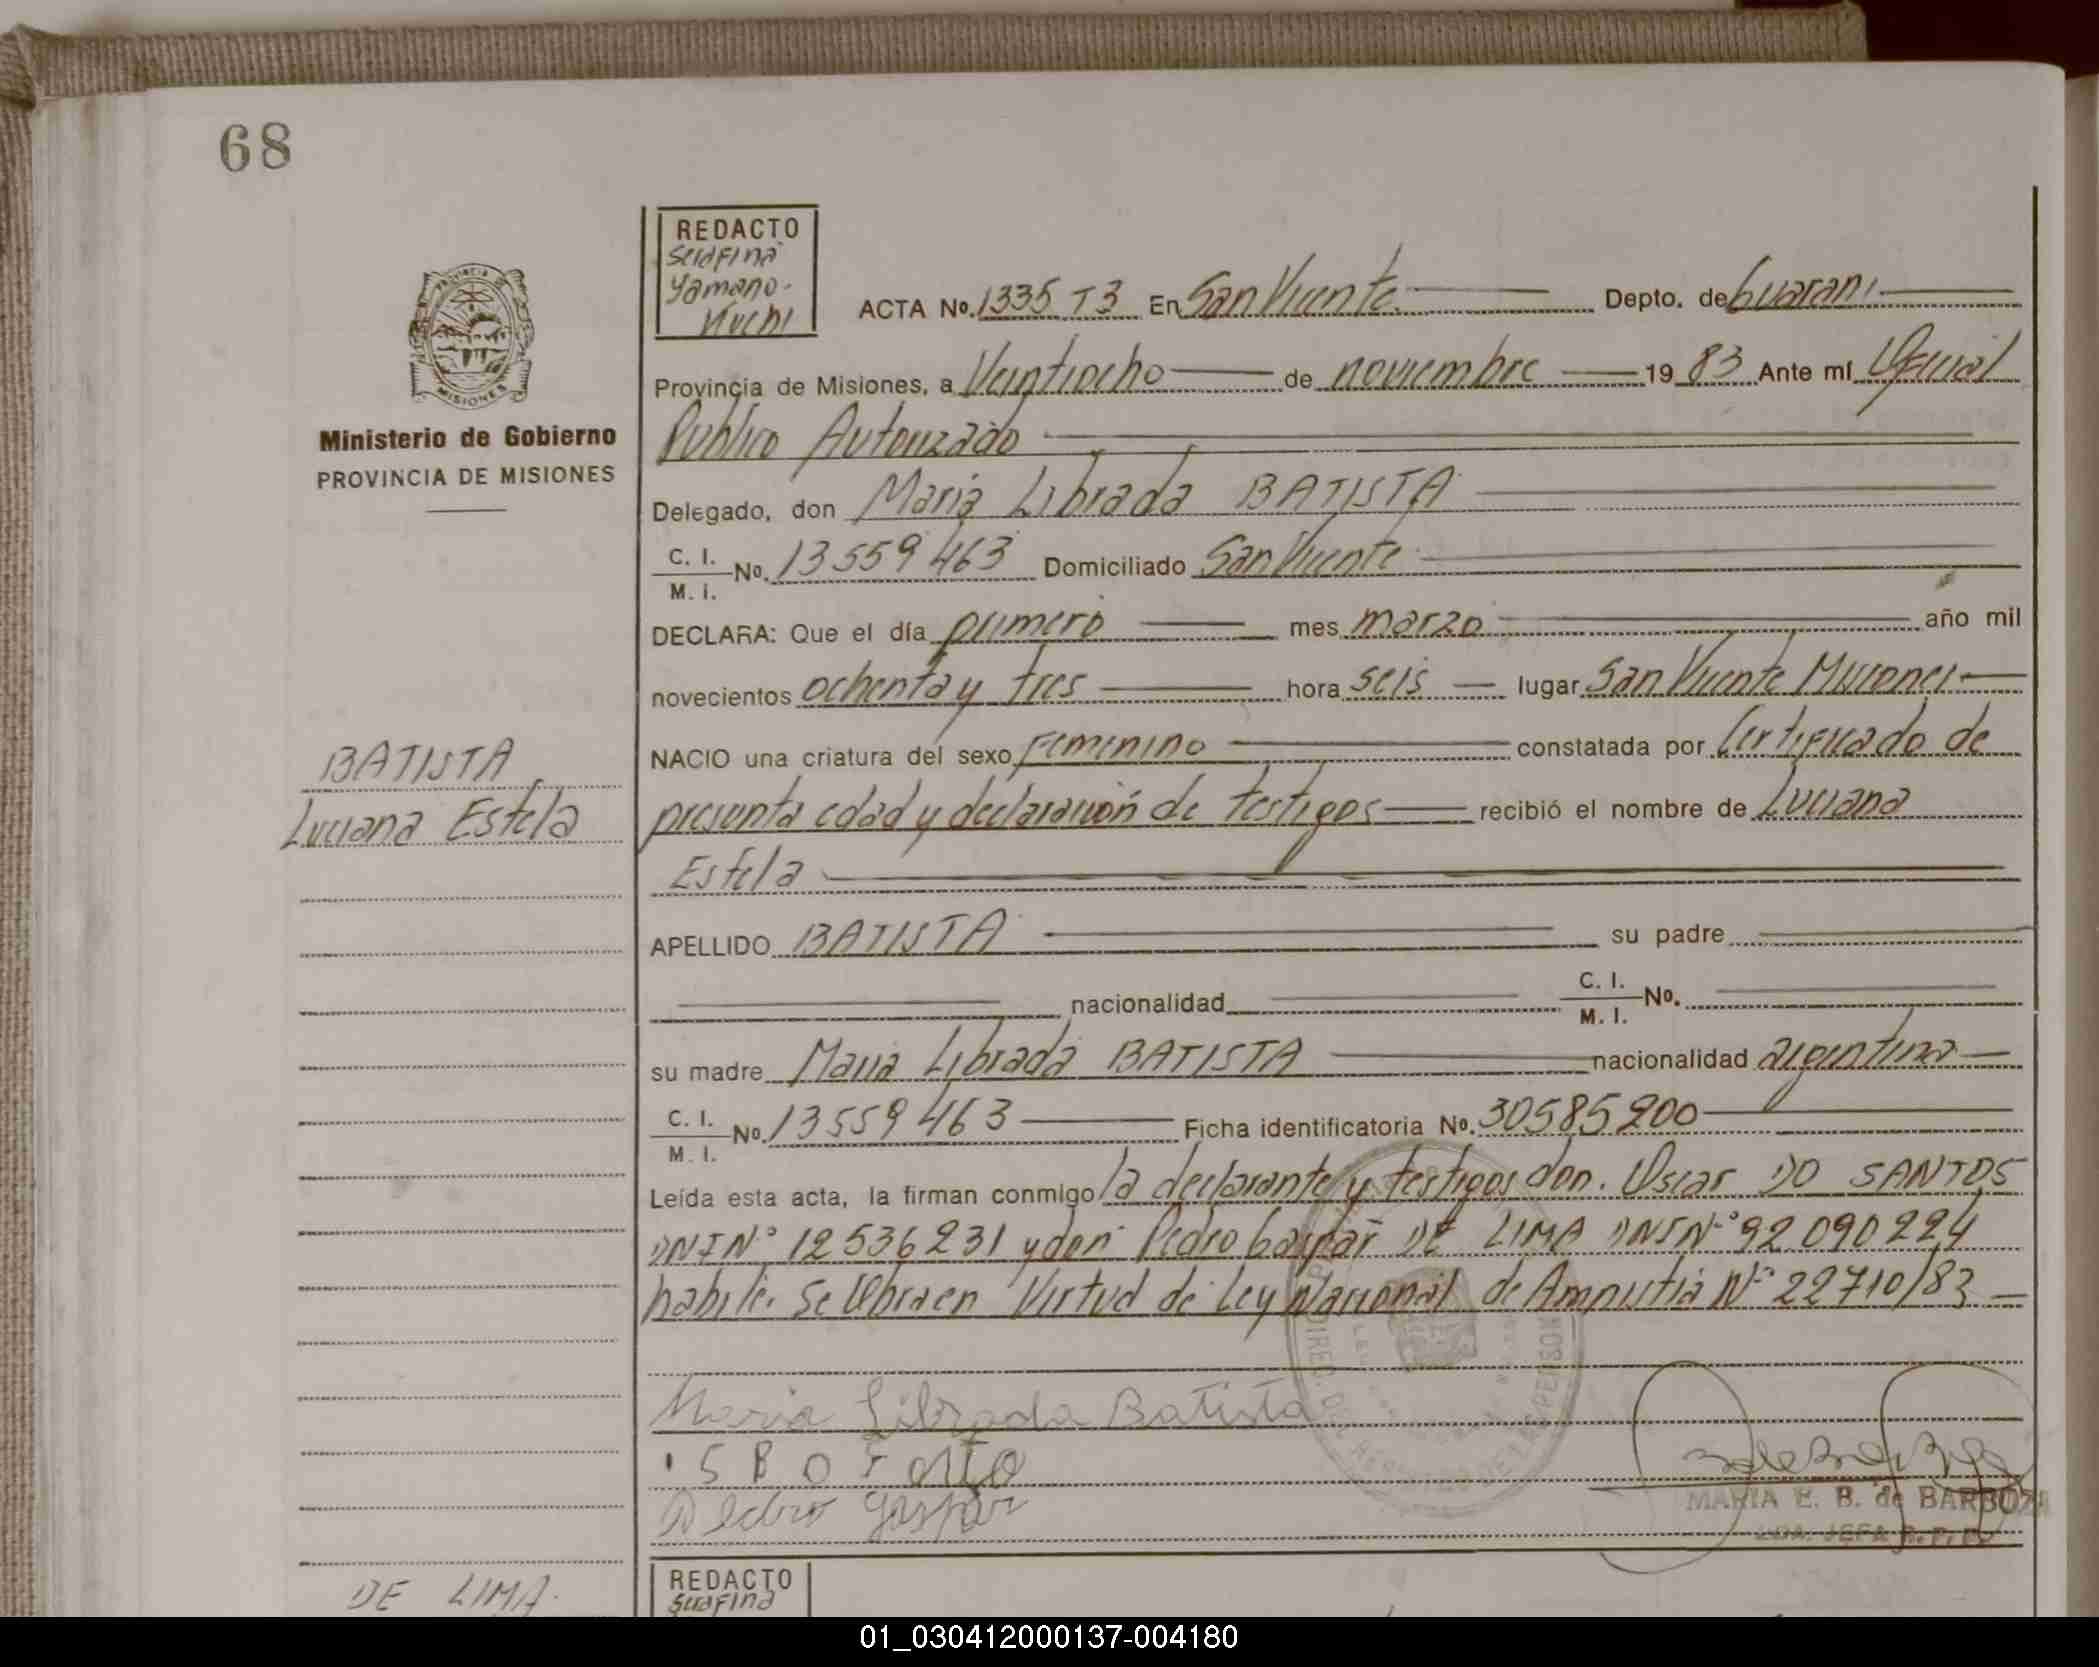 68
REDACTO
Serafina
Yamano-
Kuchi
ACTA No. 1335 T3 En San Vicente Depto. de Guarani
Provincia de Misiones, a Veintiocho de noviembre 1983 Ante mí Oficial
Publico Autorizado
Ministerio de Gobierno
PROVINCIA DE MISIONES
Delegado, don Maria Librada BATISTA
C. I.
M. I. No. 13559463 Domiciliado San Vicente
DECLARA: Que el día primero mes marzo año mil
novecientos ochenta y tres hora seis lugar San Vicente Misiones
NACIO una criatura del sexo Femenino constatada por Certificado de
presunta edad y declaración de testigos recibió el nombre de Luciana
Estela
BATISTA
Luciana Estela
APELLIDO BATISTA su padre
nacionalidad C. I.
M. I. No.
su madre Maria Librada BATISTA nacionalidad argentina
C. I.
M. I. No. 13559463 Ficha identificatoria No. 30585200
Leída esta acta, la firman conmigo la declarante y testigos don. Oscar DO SANTOS
DNI Nº 12536231 y don Pedro Gaspar DE LIMA DNI Nº 92.090224
habile. Se labra en Virtud de Ley Nacional de Amnistia Nº 22710/83
Maria Librada Batista
Pedro Gaspar
MARIA E. B. de BARBOZA
JEFA R. P.
DE LIMA
REDACTO
Serafina
01_030412000137-004180